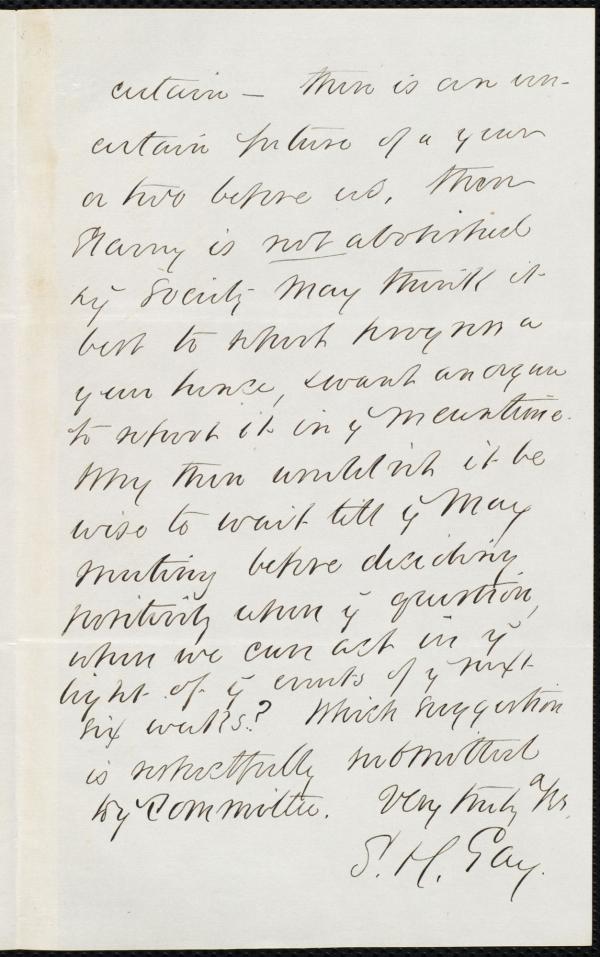 certain – there is an un-
certain future of a year
or two before us. Then
Slavery is not abolished
& ye Society may think it
best to report progress a
year hence, & want an organ
to report it in ye meantime.
Why then wouldn't it be
wise to wait till ye May
meeting before deciding
positively upon ye question,
when we can act in ye
light of ye events of ye next
six weeks? Which suggestion
is respectfully submitted
to ye Committee. Very truly yrs.
S. H. Gay.